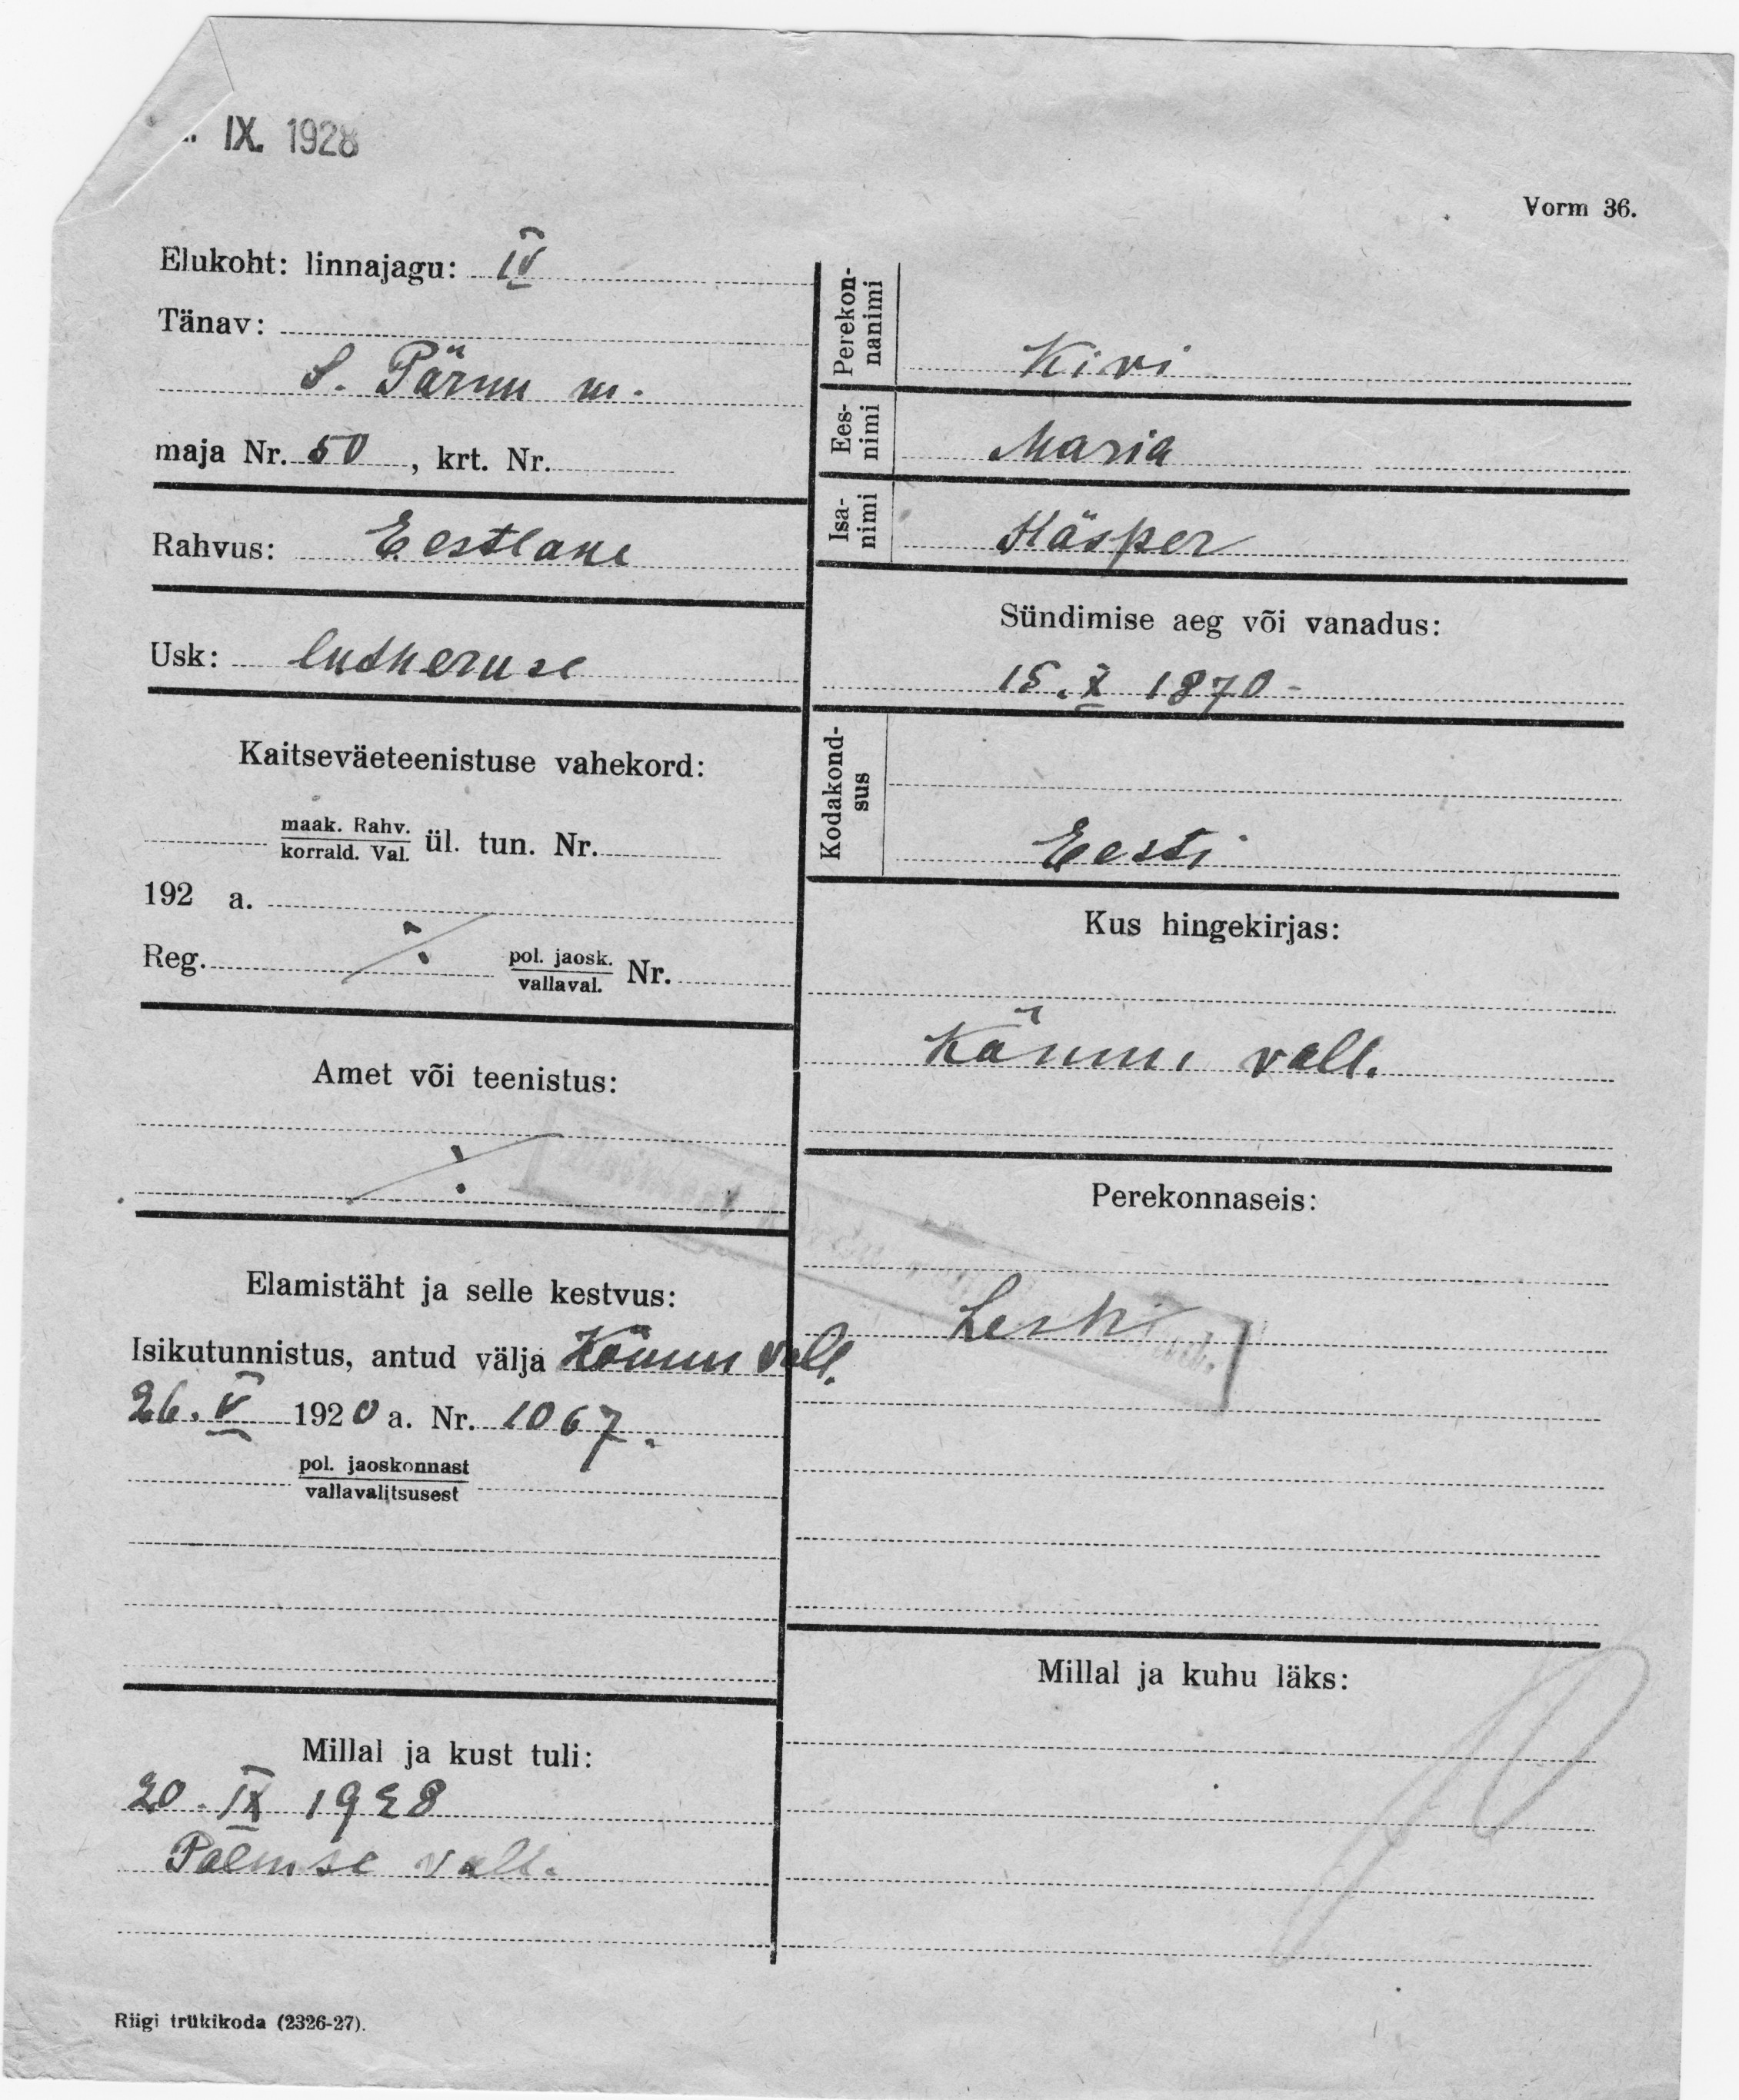 IX. 1928
Vorm 36.
Elukoht: linnajagu: IV
Tänav:
S. Pärnu m.
maja Nr. 50, krt. Nr.
Rahvus: Eestlane
Usk: lutheruse
Kaitseväeteenistuse vahekord:
maak. Rahv.
korrald. Val. ül. tun. Nr.
192 a.
Reg. ./. pol. jaosk.
vallaval. Nr.
Amet või teenistus:
./.
Elamistäht ja selle kestvus:
Isikutunnistus, antud välja Kõnnu vall.
26. V 1920 a. Nr. 1067.
pol. jaoskonnast
vallavalitsusest
Millal ja kust tuli:
20. IX 1928
Palmse vall.
Perekon-
nanimi
Kivi
Ees-
nimi
Maria
Isa-
nimi
Käsper
Sündimise aeg või vanadus:
15. X 1870 -
Kodakond-
sus
Eesti
Kus hingekirjas:
Kõnnu vall.
Perekonnaseis:
Lesk
Millal ja kuhu läks:
Riigi trükikoda (2326-27).